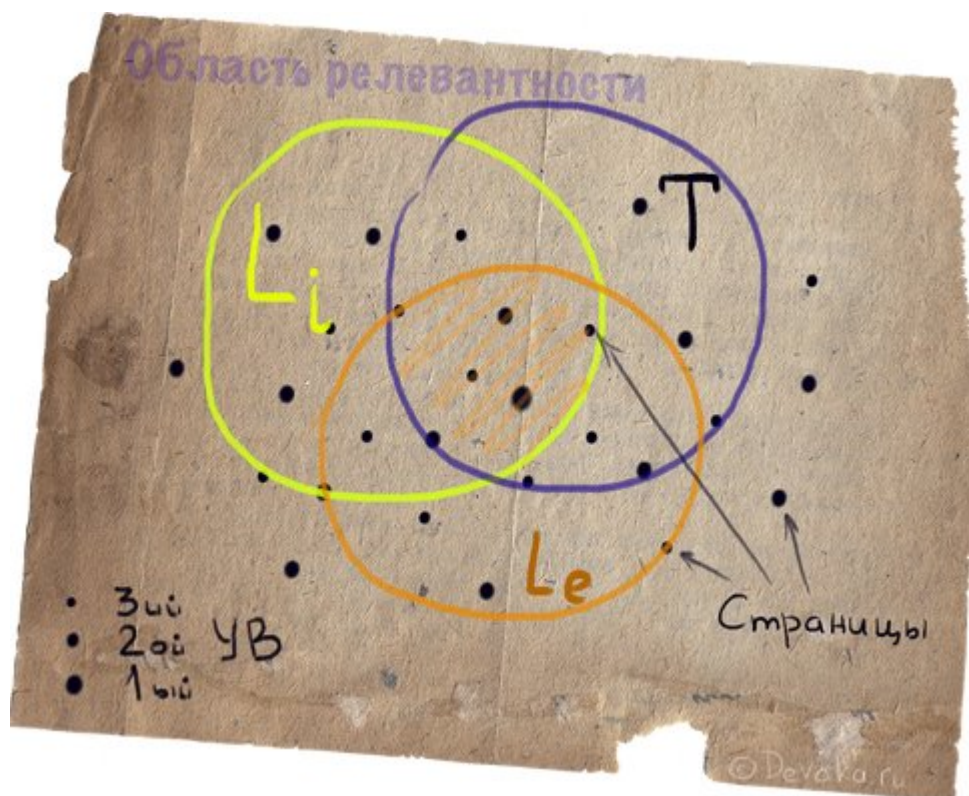 Область релевантности
T
Li
Le
Страницы
3ий
2ой УВ
1ый
©Devaka.ru